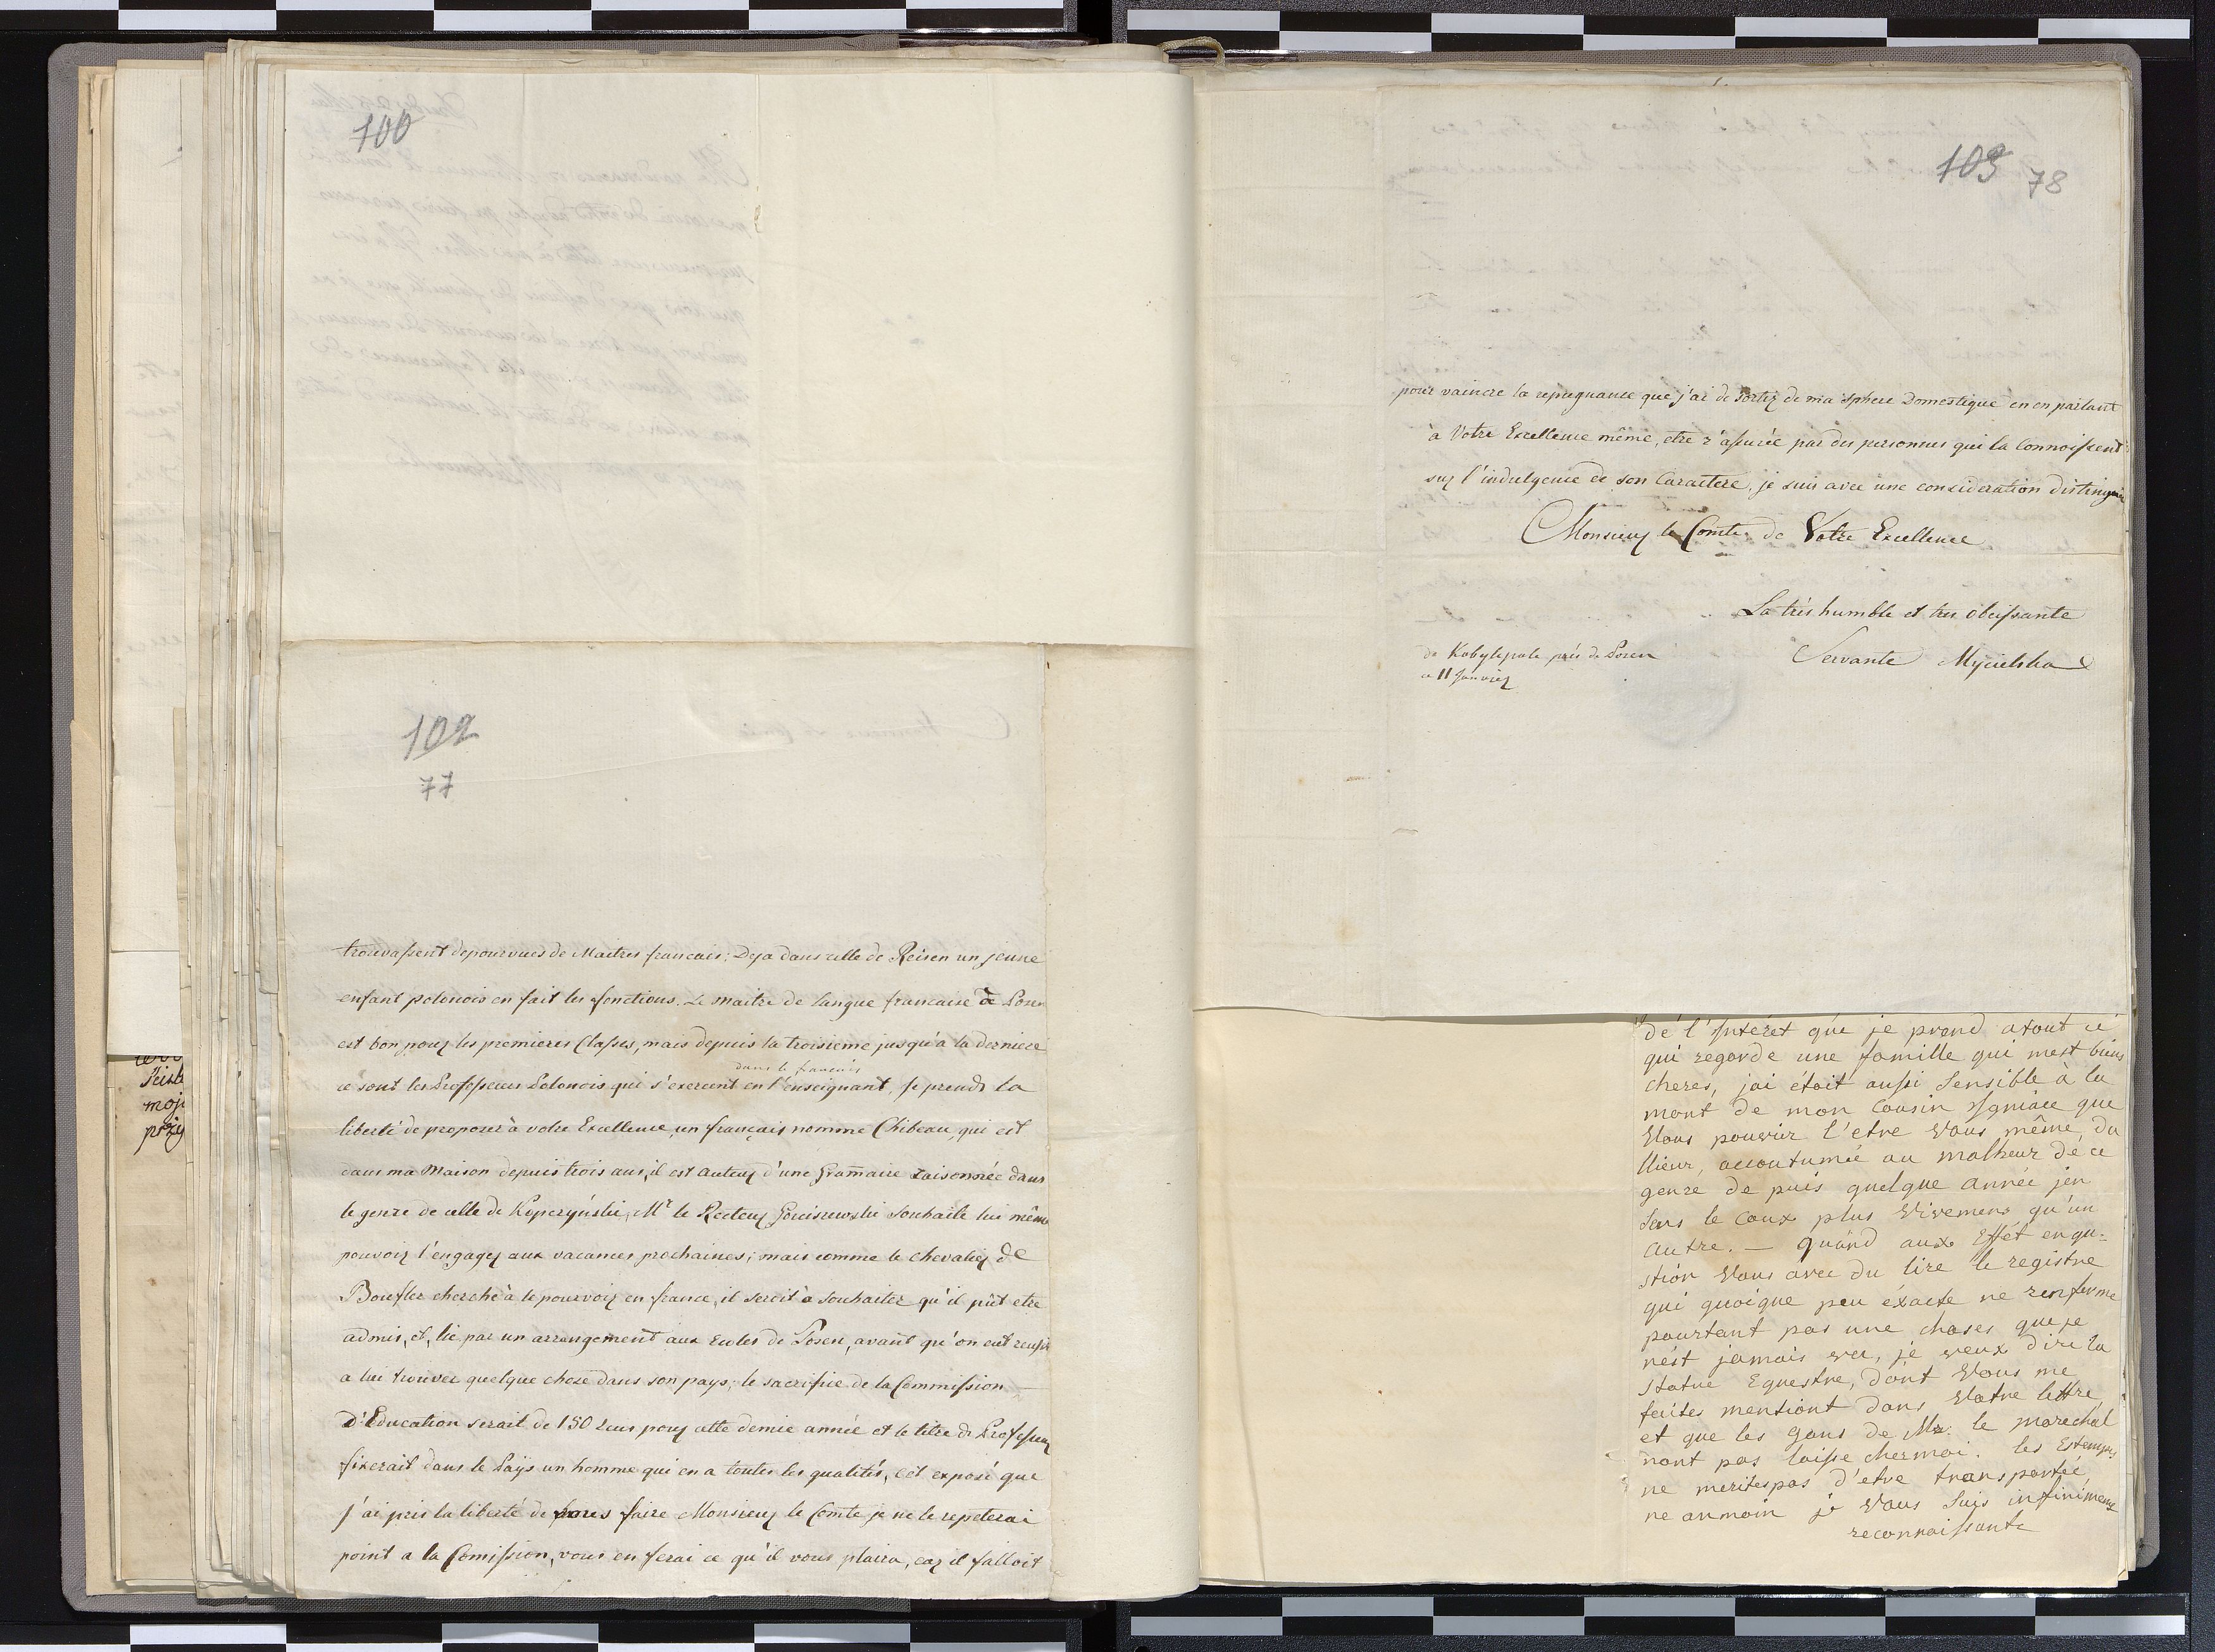 100
102
77
trouvassent depourvues de Maitres francais; Deja dans celle de Reisen un jeune
enfant polonois en fait les fonctions. Le maitre de langue francaise à Posen
est bon pour les premieres Classes, mais depuis la troisieme jusqu'à la derniere
dans le francais
ce sont les Professeurs Polonois qui s'exercent en l'enseignant, je prends la
liberté de proposer à votre Excellence, un français nommé Chibeau, qui est
dans ma Maison depuis trois ans, il est auteur d'une Gram̄aire raisonnée dans
le genre de celle de Kopczyński, Mr le Recteur Gorczewski souhaite lui même
pouvoir l'engager aux vacances prochaines; mais comme le chevalier de
Boufler cherche à le pourvoir en france, il seroit à souhaiter qu'il pût etre
admis, et, lié par un arrangement aux Ecoles de Posen, avant qu'on eut reussi
a lui trouver quelque chose dans son pays; le sacrifice de la Commission
D'Education serait de 150 Ecus pour cette demie année et le titre de Professeur
fixerait dans le Païs un homme qui en a toutes les qualités, cet exposé que
j'ai pris la liberté de faire Monsieur le Comte je ne le repeterai
point a la Comission, vous en ferai ce qu'il vous plaira, car il falloit
103
78
pour vaincre la repugnance que j'ai de sortir de ma sphere Domestique en en parlant
à Votre Excellence même, etre r'assurée par des personnes qui la Connoissent
sur l'indulgence de son Caractere, je suis avec une consideration distinguée
Monsieur le Comte de Votre Excellence
La très humble et tres obeissante
Servante Mycielska
de Kobylepole près de Posen
ce 11 Janvier
de l'Jntéret que je prand atout ce
qui regarde une famille qui mest bien
cheres, jai étoit aussi Sensible à la
mont de mon Cousin Jgniace que
Vous pouvoir l'etre Vous même, du
llieur, accoutumée au malheur de ce
genre de puis quelque année jen
Sens le Coux plus Vivemens qu'un
autre. — Quand aux Effét en que-
stion Vous avee du lire le registre
qui quoique peu éxacte ne renferme
pourtant pas une choses que je
nést jamais vu, je veux dire la
statue Equestre, dont Vous me
faites mentiont dans Votre lettre
et que les gans de Mr. le Marechal
nont pas laisse chermoi. les Estempes
ne meritespas d'etre transportée,
ne anmoin je Vous Suis infinimens
reconnoissante
moj
przy